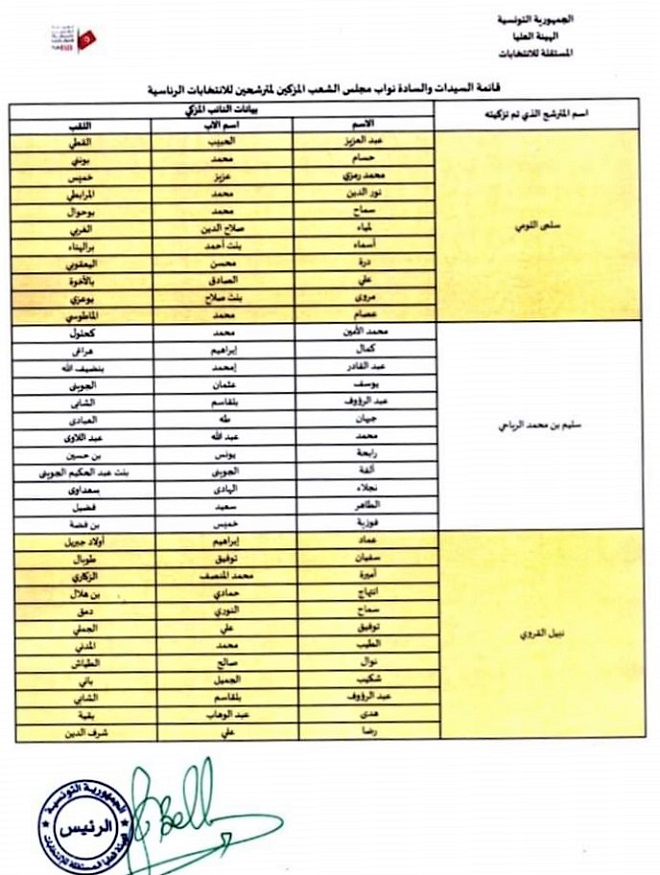 الجمهورية التونسية
الهيئة العليا
المستقلة للانتخابات
قائمة السيدات والسادة نواب مجلس الشعب المزكين لمترشحين للانتخابات الرئاسية
اسم المترشح الذي تم تزكيته
بيانات النائب المزكي
الاسم اسم الأب اللقب
سلمى اللومي
عبد العزيز الحبيب القطي
حسام محمد بونني
محمد رمزي عزيز خميس
نور الدين محمد المرابطي
سماح محمد بوحوال
لمياء صلاح الدين الغربي
أسماء بنت أحمد
درة محسن اليعقوبي
علي الصادق بالأخوة
مروى بنت صلاح بوعزي
عصام محمد الماطوسي
سليم بن محمد الرياحي
محمد الأمين محمد كحلول
كمال إبراهيم هراغي
عبد القادر إمحمد بنضيف الله
يوسف عثمان الجويني
عبد الرؤوف بلقاسم الشابي
جيهان طه العبادي
محمد عبد الله عبد اللاوي
رابحة يونس بن حسين
ألفة الجويني بنت عبد الحكيم الجويني
نجلاء الهادي سعداوي
الطاهر سعيد فضيل
فوزية خميس بن فضة
نبيل القروي
عماد إبراهيم أولاد جبريل
سفيان توفيق طوبال
أميرة محمد المنصف الزكاري
ابتهاج حمادي بن هلال
سماح النوري دمق
توفيق علي الجملي
الطيب محمد المدني
نوال صالح الطياش
شكيب الجميل باني
عبد الرؤوف بلقاسم الشابي
هدى عبد الوهاب بقية
رضا علي شرف الدين
الجمهورية التونسية
الرئيس
الهيئة العليا المستقلة للانتخابات